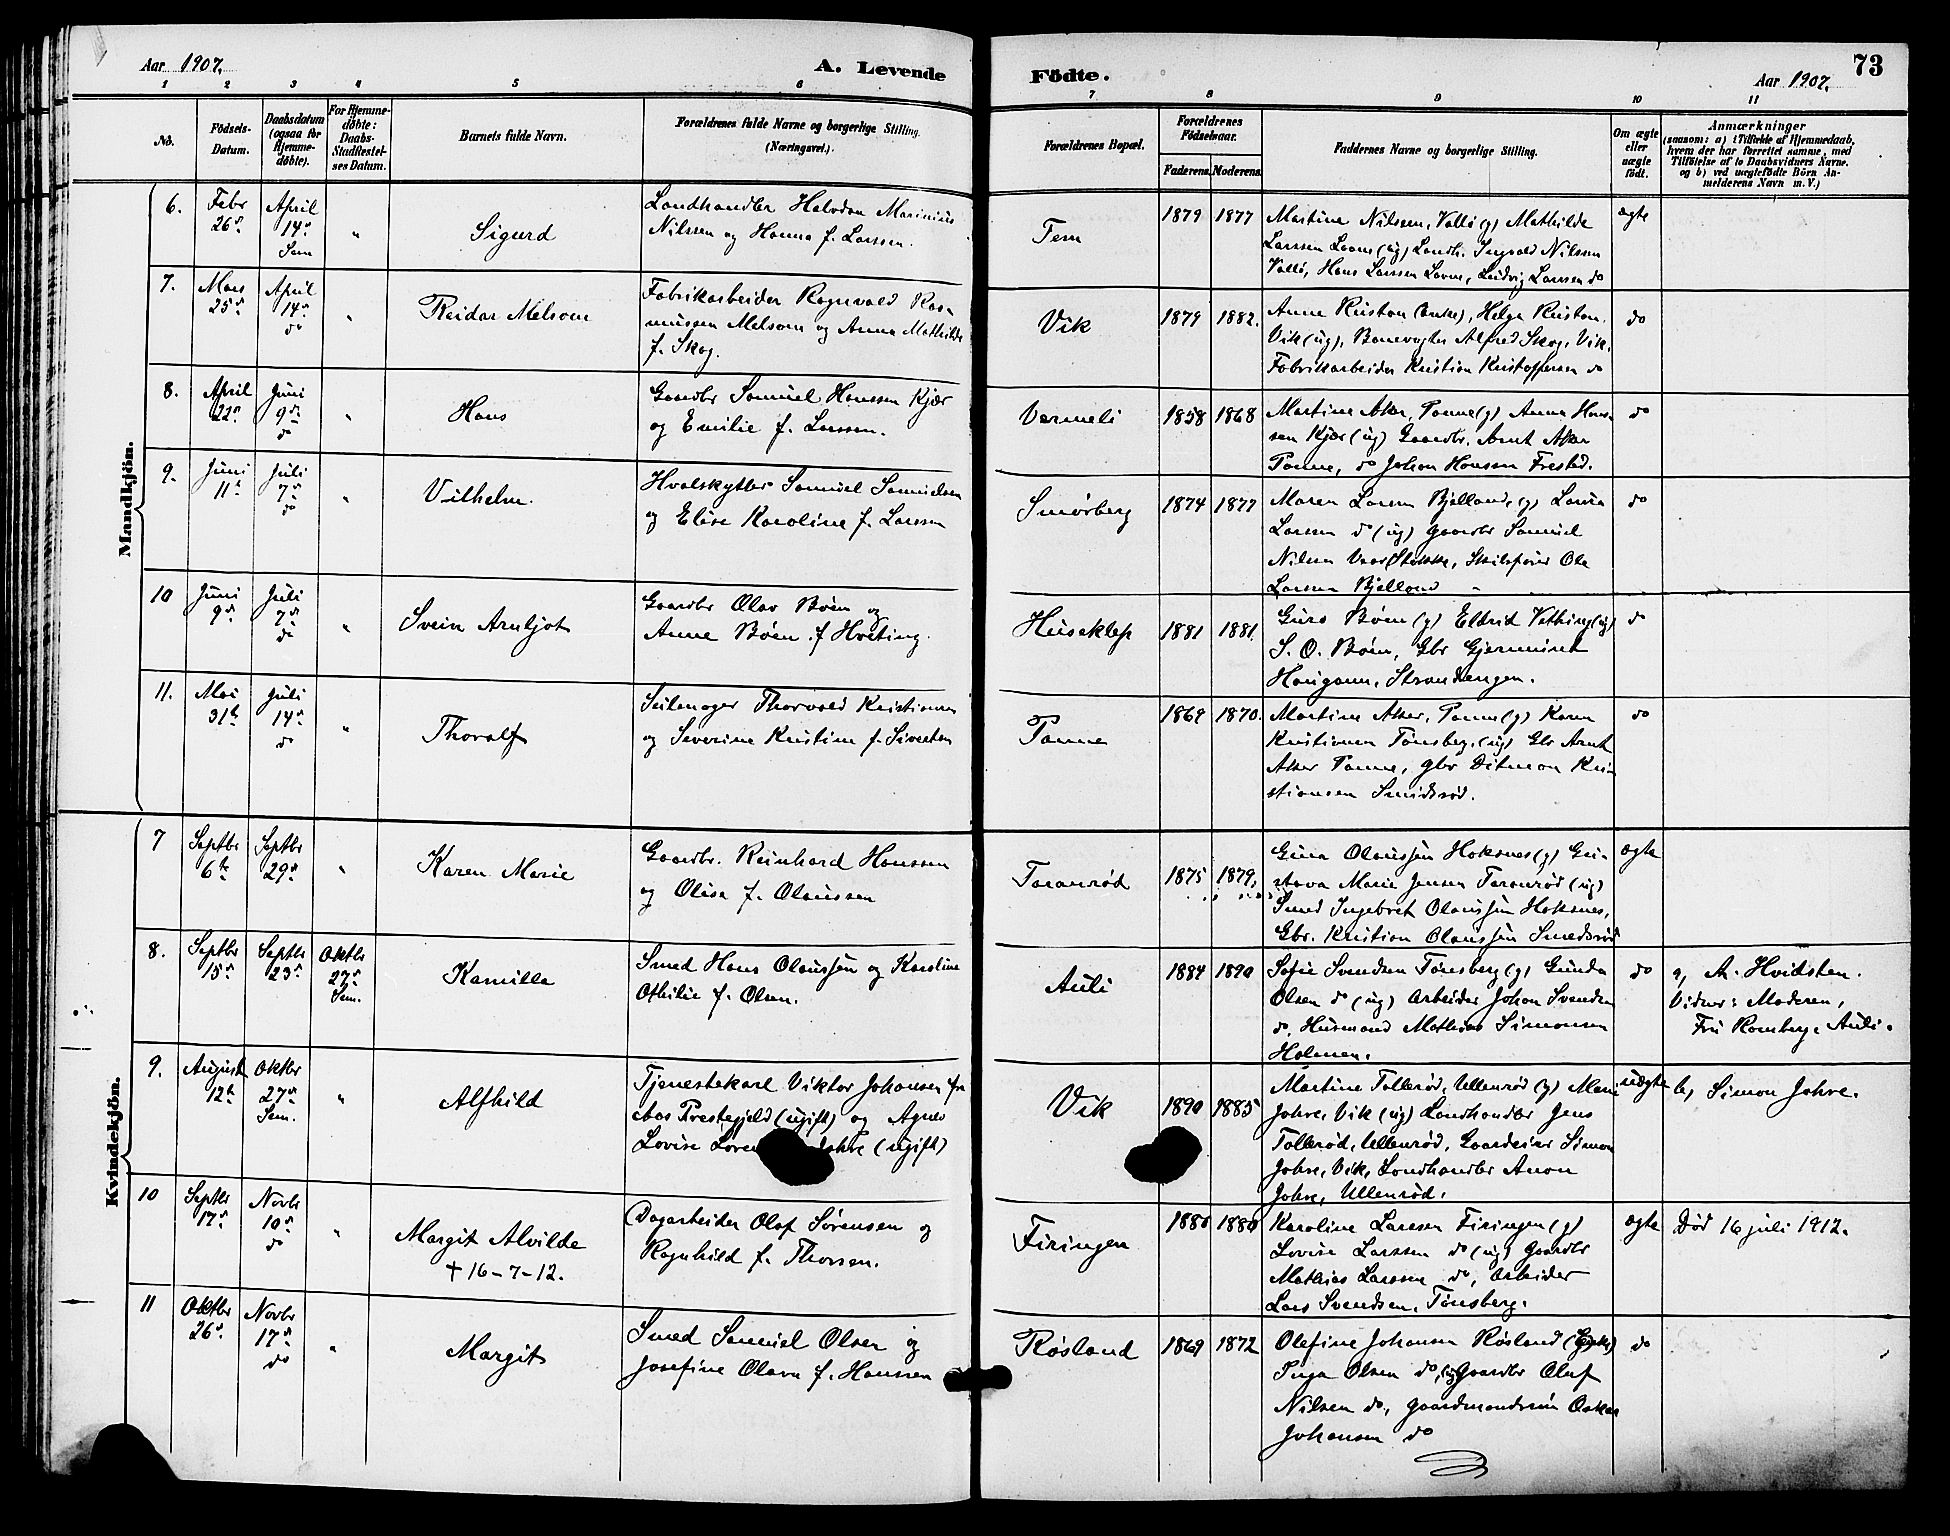 Aar 1907.
A. Levende
Födte.
Aar 1907.
73
1 2 3 4 5 6 7 8 9 10 11
No.
Födsels-
Datum.
Daabsdatum
(ogsaa for
Hjemme-
döbte).
For Hjemme-
döbte:
Daabs-
Stadfæstel-
ses Datum.
Barnets fulde Navn.
Forældrenes fulde Navne og borgerlige Stilling.
(Næringsvei.)
Forældrenes Bopæl.
Forældrenes
Födselsaar.
Faderens. Moderens.
Faddernes Navne og borgerlige Stilling.
Om ægte
eller
uægte
födt.
Anmærkninger
(saasom: a) i Tilfælde af Hjemmedaab,
hvem der har forrettet samme, med
Tilföielse af to Daabsvidners Navne.
og b) ved uægtefödte Börn An-
melderens Navn m. V.)
Mandkjön.
6.
Febr
26d
April
14d
Sem
"
Sigurd
Landhandler Halvdan Marinius
Nilssen og Hanna f. Larssen.
Tem
1879 1877
Martine Nilssen, Vallø (g) Mathilde
Larssen Lovne (ug) Landh. Ingvald Nilssen
Vallø, Hans Larssen Lovne, Ludvig Larssen do
ægte
7.
Mars
25d
April
14d
do
"
Reidar Melsom
Fabrikarbeider Ragnvald Ras-
mussen Melsom og Anna Mathilde
f. Skog.
Vik
1879 1882.
Anne Ruston (enke), Helga Ruston
Vik (ug), Banevogter Alfred Skog, Vik,
Fabrikarbeider Kristian Kristoffersen do
do
8.
April
22d
Juni
9d
do
"
Hans
Gaardbr Samuel Hanssen Kjær
og Emilie f. Larssen.
Vermeli
1858 1868
Martine Aker, Tanne (g) Anna Hans-
sen Kjær (ug) Gaardbr. Arnt Aker
Tanne, do Johan Hanssen Frested.
do
9.
Juni
11t
Juli
7d
do
"
Vilhelm.
Hvalskytter Samuel Samuelsen
og Elise Karoline f. Larssen
Smørberg
1874 1877
Maren Larssen Bjelland, (g) Laura
Larssen do (ug) gaardbr Samuel
Nilsen Vaar Stokke, Skibsfører Ole
Larssen Bjelland
do
10
Juni
9d
Juli
7d
do
"
Svein Arnljot
Gaardbr Olav Bøen og
Anne Bøen f. Hveting.
Huseklep
1881 1881.
Guro Bøen (g) Eldrid Vetting (ug)
S. O. Bøen, Gbr Gjermund
Haugann, Strandengen.
do
11.
Mai
31te
Juli
14d
do
"
Thoralf
Seilmager Thorvald Kristiansen
og Severine Kristine f. Sivertsen
Tanne
1869 1870.
Martine Aker, Tanne (g) Karen
Kristiansen Tønsberg, (ug) Gbr Arnt
Aker Tanne, gbr Ditman Kri-
stiansen Smidsrød.
do
Kvindekjön.
7
Septbr
6te
Septbr
29d
"
Karen Marie
Gaardbr. Reinhard Hanssen
og Olise f. Olaussen
Taranrød
1875 1879,
Gina Olaussen Hoksnes (g) Gu-
stava Marie Jensen Taranrød (ug)
Smed Ingebret Olaussen Hoksnes,
Gbr. Kristian Olaussen Smedsrød
ægte
8.
Septbr
15d
Septbr
23d
Oktbr
27d
Sem.
Kamilla
Smed Hans Olaussen og Karoline
Othilie f. Olsen.
Auli
1884 1890
Sofie Svendsen Tønsberg (g) Gunda
Olsen do (ug) Arbeider Johan Svendsen
do, Husmand Mathias Simonsen
Holmen.
do
a, A. Hvidsten.
Vidner: Moderen,
Fru Romberg, Auli.
9.
August
12te
Oktbr
27d
Sem.
"
Alfhild
Tjenestekarl Viktor Johansen fra
Prestegjeld (ugift) og Agnes
Lovise (ugift)
Vik
1890 1885
Martine Tollerød, Ullenrød (g) Marie
Johre, Vik (ug) Landhandler Jens
Tollerød, Ullenrød, Gaardeier Simon
Johre, Vik, Landhandler Anon
Johre, Ullenrød.
uægte
b, Simon Johre.
10
Septbr
17d
Novbr
10d
do
"
Margit Alvilde
+ 16-7-12.
Dagarbeider Olaf Sørensen og
Ragnhild f. Thorsen.
Firingen
1880 1880
Karoline Larssen Firingen (g)
Lovise Larssen do (ug) gaardbr
Mathias Larssen do, Arbeider
Lars Svendsen, Tønsberg.
ægte
Død 16 juli 1912.
11
Oktbr
26d
Novbr
17d
do
"
Margit
Smed Samuel Olsen og
Josefine Olava f. Hanssen
Røsland
1869 1872
Olefine Johansen Røsland (Enke)
Inga Olsen do, (ug) gaardbr Oluf
Nilsen do, gaardmandssøn Oskar
Johansen do
do